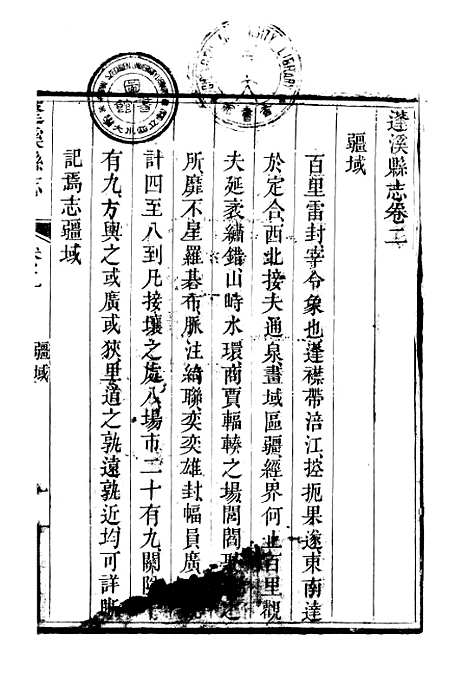 蓬溪縣志卷二
疆域
百里雷封宰令象也蓬襟帶涪江控扼果遂東南達
於定合西北接夫通泉畫域區疆經界何止百里觀
夫延袤繡錯山峙水環商賈輻輳之場閭閻聚
所靡不星羅碁布脈注綺聯奕奕雄封幅員廣
計四至八到凡接壤之處八場市二十有九關隘
有九方輿之或廣或狹里道之孰遠孰近均可詳晰
記焉志疆域
蓬溪縣志
疆域